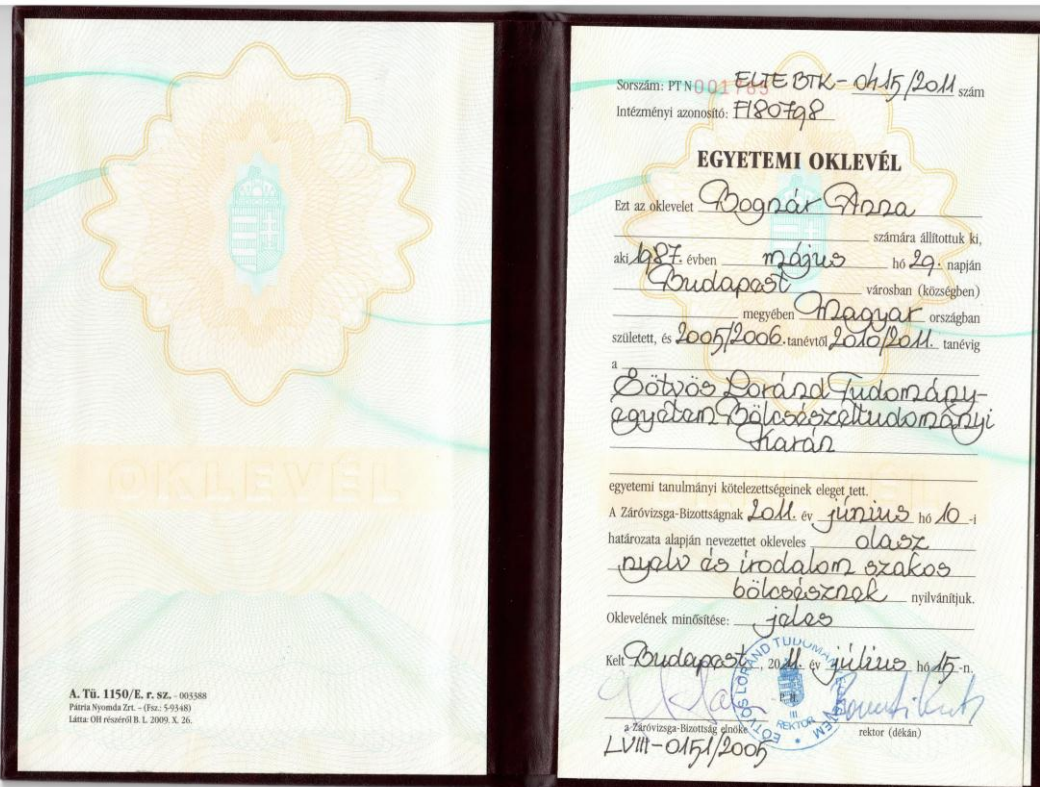 OKLEVÉL
A. Tü. 1150/E. r. sz. - 003388
Pátria Nyomda Zrt. – (Fsz.: 5-9348)
Látta: OH részéről B. L. 2009. X. 26.
Sorszám: PT N 001785 ELTE BTK - 0415/2011 szám
Intézményi azonosító: FI80798
EGYETEMI OKLEVÉL
Ezt az oklevelet Bognár Anna
számára állítottuk ki,
aki 1987. évben május hó 29. napján
Budapest városban (községben)
megyében Magyar országban
született, és 2005/2006. tanévtől 2010/2011. tanévig
a
Eötvös Loránd Tudomány-
egyetem Bölcsészettudományi
Karán
egyetemi tanulmányi kötelezettségeinek eleget tett.
A Záróvizsga-Bizottságnak 2011. év június hó 10 -i
határozata alapján nevezettet okleveles olasz
nyelv és irodalom szakos
bölcsésznek nyilvánítjuk.
Oklevelének minősítése: jeles
Kelt Budapest, 2011. év július hó 15 -n.
EÖTVÖS LORÁND TUDOMÁNYEGYETEM
P. H.
III
REKTOR
a Záróvizsga-Bizottság elnöke
rektor (dékán)
LVIII-0151/2005